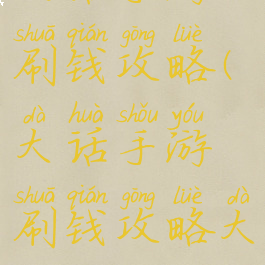 shuā qián gōng lüè
刷钱攻略(
dà huà shǒu yóu
大话手游
shuā qián gōng lüè dà
刷钱攻略大